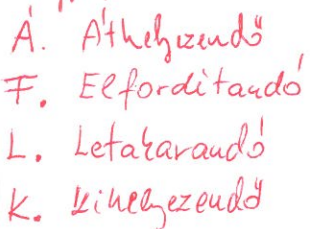 Á. Áthelyezendő
F. Elfordítandó
L. Letakarandó
K. Kihelyezendő